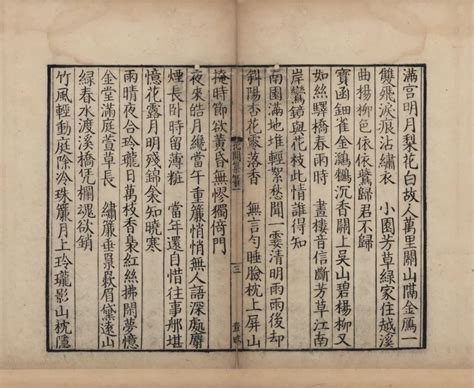 滿宮明月梨花白故人萬里關山隔金鴈一
雙飛淚痕沾繡衣　小園芳草綠家住越溪
曲楊柳色依依鷰歸君不歸
寶函鈿雀金鸂鶒沉香關上吳山碧楊柳又
如絲驛橋春雨時　畫樓音信斷芳草江南
岸鸞鏡與花枝此情誰得知
南園滿地堆輕絮愁聞一霎清明雨雨後却
斜陽杏花零落香　無言勻睡臉枕上屏山
掩時節欲黃昏無憀獨倚門
三
夜來皓月纔當午重簾悄悄無人語深處麝
煙長卧時留薄粧　當年還自惜往事那堪
憶花露月明殘錦衾知曉寒
雨晴夜合玲瓏日萬枝香裊紅絲拂閑夢憶
金堂滿庭萱草長　繡簾垂眉黛遠山
綠春水渡溪橋凭欄魂欲銷
竹風輕動庭除冷珠簾月上玲瓏影山枕隱